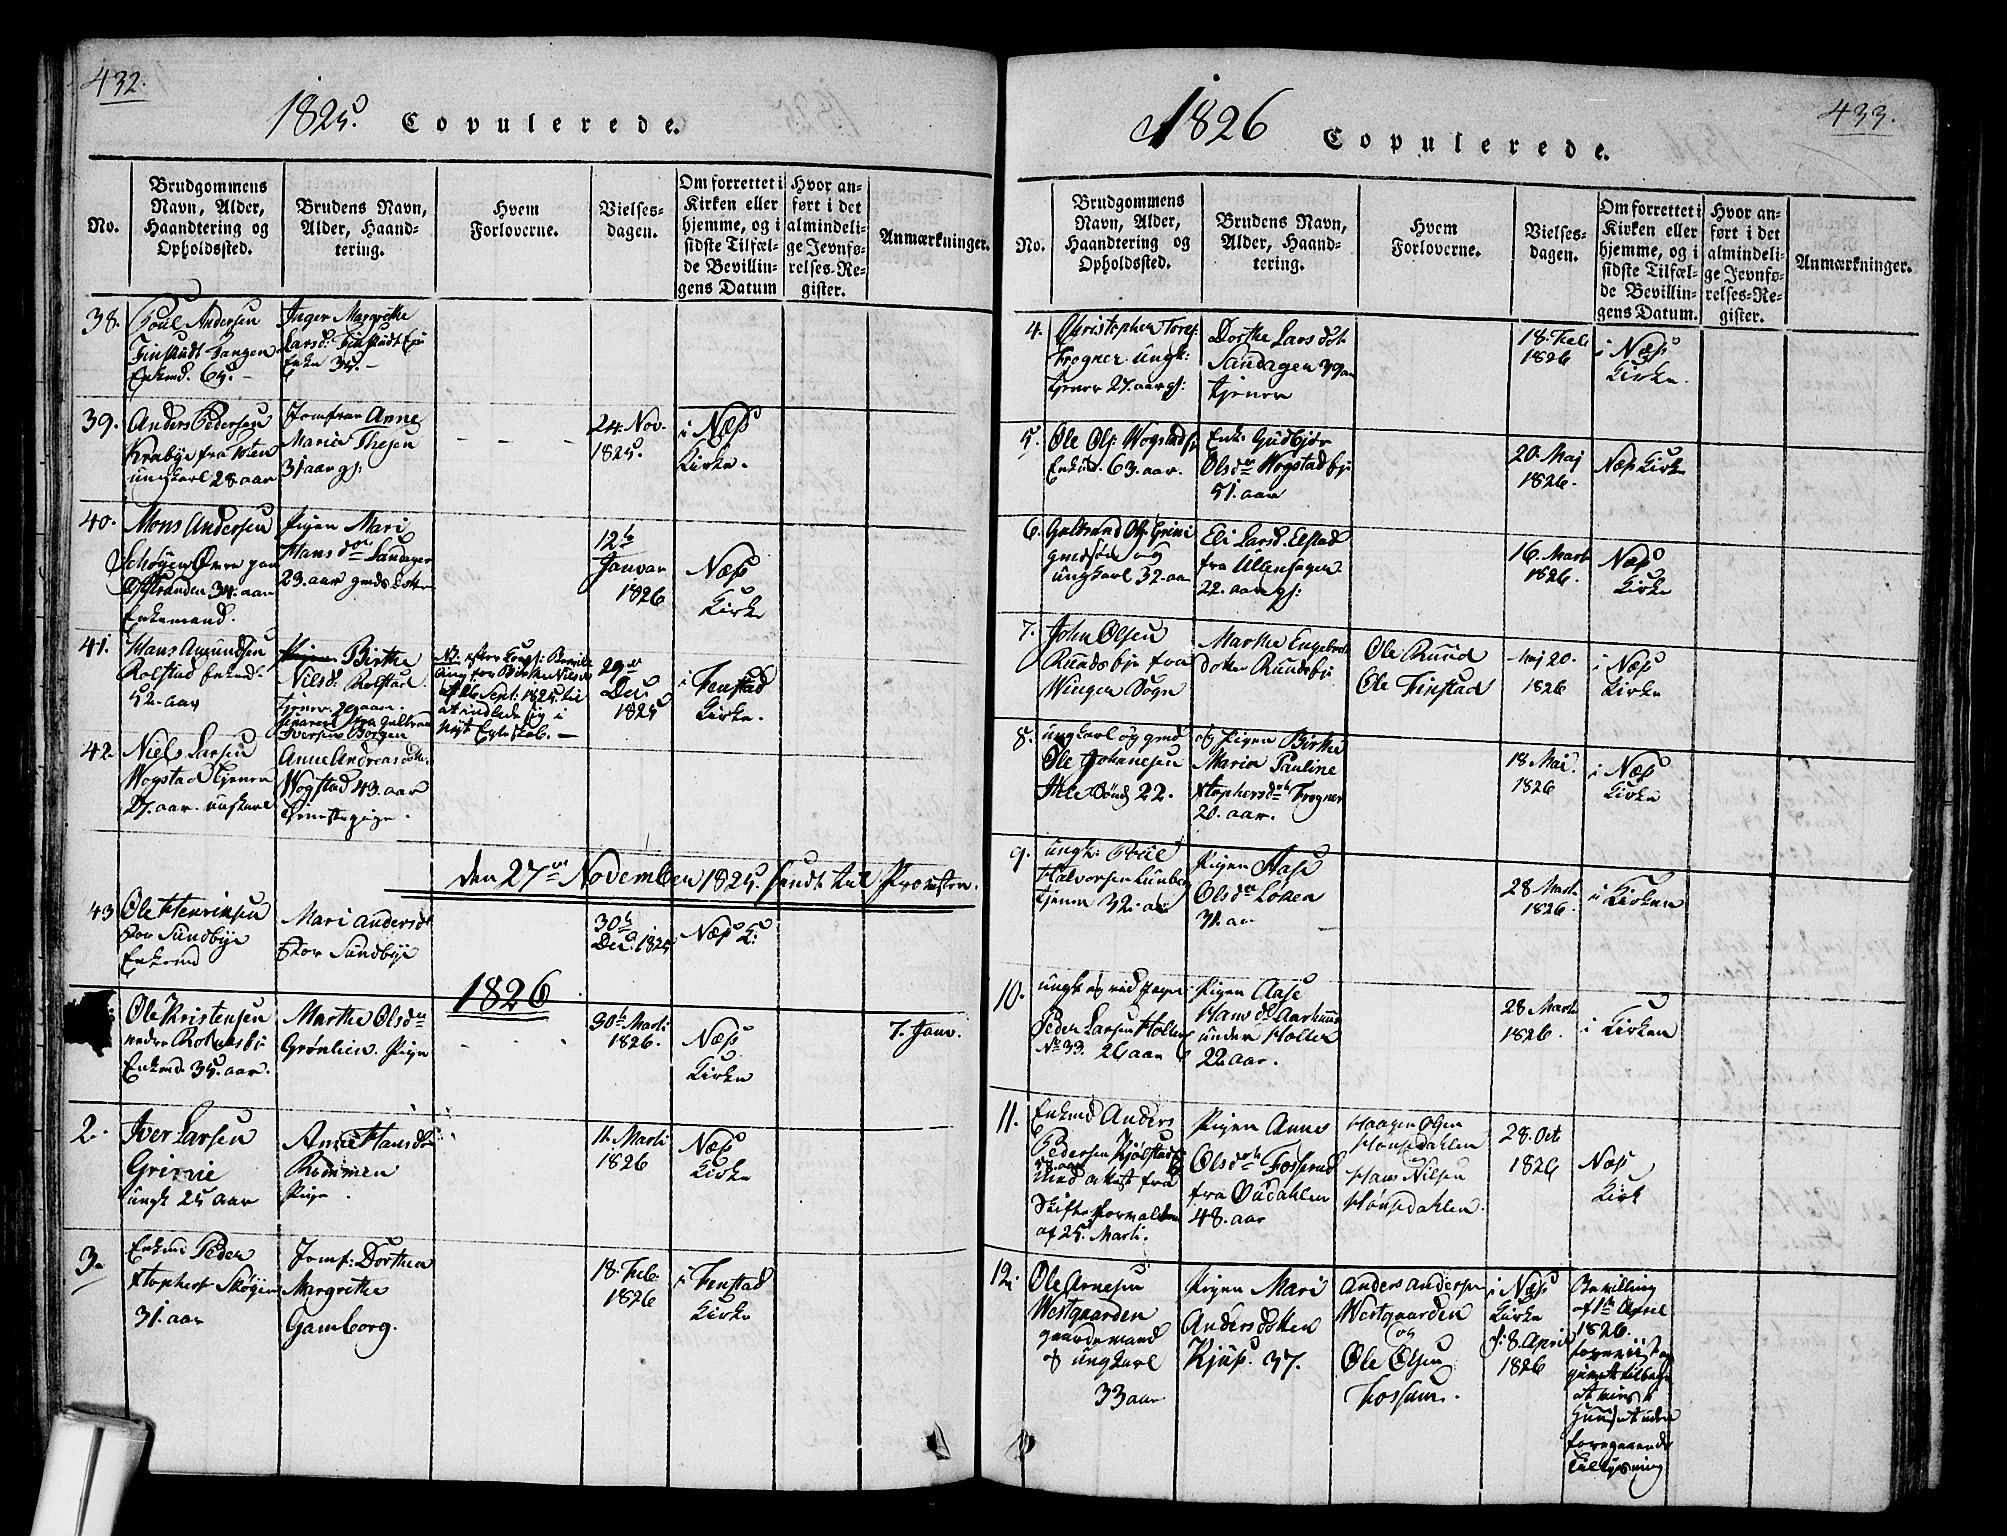 432.
1825. Copulerede.
No.
Brudgommens
Navn, Alder,
Haandtering og
Opholdssted.
Brudens Navn,
Alder, Haand-
tering.
Hvem
Forloverne.
Vielses-
dagen.
Om forrettet i
Kirken eller
hjemme, og i
sidste Tilfæl-
de Bevillin-
gens Datum
Hvor an-
ført i det
almindeli-
ge Jevnfø-
relses-Re-
gister.
Anmærkninger.
38.
Poul Andersen
Finstudt Tangen
Enkmd. 65.
Inger Margrethe
Larsd: Finstudt
Enke 35.
39.
Anders Pedersen
Krabye fra
ungkarl 28 aar
Jomfrue Anne
Maria Thesen
31 aar gl:
24. Nov.
1825.
i Næs
Kirke.
40.
Mons Andersen
Schøgen Øvre paa
34. aar
Enkemand.
Pigen Mari
Hansd. Sandager
23. aar
12te
Januar
1826
Næs
Kirke
41.
Hans Amundsen
Rolstad Enkmd.
52. aar
Pigen Birthe
Nilsd. Rolstad
tjener. aar.
Borgen
Nielsd.
Sept. 1825 til
at indlade sig i
nyt Egteskab.
29de
Dec
1825
i Fenstad
Kirke.
42.
Niels Larsen
Wogstad tjener
27. aar. ungkarl
Anne Andreasdatt.
Wogstad 43. aar
tjenestepige.
den 27de November 1825. sendt til Provsten.
43
Ole Henriksen
Stor Sundbye
Enkemd
Mari Andersd
Stor Sundbye
30te
Dec. 1825
Næs K:
1826
Ole Kristensen
nedre
Enkmd. 35. aar.
Marthe Olsd
Grønlien. Pige
30te Marti
1826.
Næs
Kirke
7. Janv.
2.
Iver Larsen
Grinie
ungk 25 aar
Anne Hansd
Rommen
Pige.
11. Marti
1826
Næs
Kirke
3.
Enkmd Peder
Xtophers Skøgen
31. aar
Jomf: Dorthea
Margrethe
Gamborg.
18. Feb.
1826
i Fenstad
Kirke
433.
1826 Copulerede.
No.
Brudgommens
Navn, Alder,
Haandtering og
Opholdssted.
Brudens Navn,
Alder, Haand-
tering.
Hvem
Forloverne.
Vielses-
dagen.
Om forrettet i
Kirken eller
hjemme, og i
sidste Tilfæl-
de Bevillin-
gens Datum.
Hvor an-
ført i det
almindeli-
ge Jevnfø-
relses-Re-
gister.
Anmærkninger.
4.
Christopher Tores.
Frogner ungk:
tjener 27. aar gl:
Dorthe Larsdat
Sandagen 39 aar
tjener
18. Feb
1826
i Næs
Kirke.
5.
Ole Ols: Wogstad
Enkmd. 63. aar.
Enke Gudbjør
Olsd Wogstad
51. aar
20. Maj
1826.
Næs Kirke
6.
Gulbrand Ols: Grini
ungkarl 32. aar
Eli Larsd. Elstad
fra Ullensager
22. aar gl:
16. Marti
1826.
Næs
Kirke
7.
John Olsen
Rundsbye fra
Winger Sogn
Marthe Engebrets
dotter Rundsbye
Ole Ruud
Ole Finstad
Maj 20.
1826
i Næs
Kirke
8.
ungkarl og gmd
Ole Johanesen
22.
og Pigen Birthe
Maria Pauline
Xtophersd Frogner
20. aar.
18. Mai.
1826
i Næs
Kirke
9.
ungk: Poul
Halvorsen
tjener 32. aar
Pigen Aase
Olsd Løken
31. aar
28 Marti
1826.
i Kirken
10.
ungk og
Peder Larsen Holter
No 33. 26 aar
Pigen Aase
Hansd
under Holter
22 aar.
28 Marti
1826.
i Kirken
11.
Enkmd Anders
Pedersen Kjølstad
58. aar
med Attest fra
Skifteforvalteren
af 25. Marti.
Pigen Anne
Olsd Fosserud
fra Oudahlen
48. aar
Haagen Olsen
Hønsedahlen
Hans Nilsen
Hønsedahlen.
28. Oct
1826
Næs
Kirk
12.
Ole Arnesen
Westgaarden
gaardemand
og ungkarl
33 aar
Pigen Mari
Andersdotter
Kjus. 37.
Anders Andersen
Westgaarden
og
Ole Olsen
Fossum.
i Næs
Kirke
d: 8. April
1826
Bevilling
af 1te April
1826.
foregaaende
Tillysning